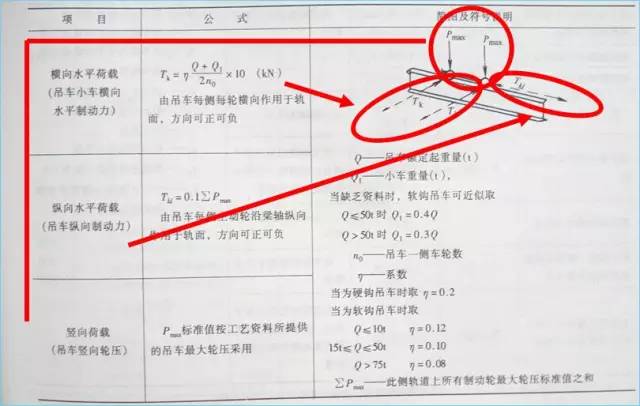 项 目
公 式
简图及符号说明
横向水平荷载
(吊车小车横向
水平制动力)
Tk = η (Q + Q1)/(2n0) ×10 (kN)
由吊车每侧每轮横向作用于轨
面，方向可正可负
Pmax Pmax
Tk
T
Tkl
纵向水平荷载
(吊车纵向制动力)
Tkl = 0.1∑Pmax
由吊车每侧主动轮沿梁轴纵向
作用于轨面，方向可正可负
竖向荷载
(吊车竖向轮压)
Pmax标准值按工艺资料所提供
的吊车最大轮压采用
Q——吊车额定起重量(t)
Q1——小车重量(t)，
当缺乏资料时，软钩吊车可近似取
Q⩽50t 时 Q1 = 0.4Q
Q>50t 时 Q1 = 0.3Q
n0——吊车一侧车轮数
η——系数
当为硬钩吊车时取 η = 0.2
当为软钩吊车时取
Q⩽10t η = 0.12
15t⩽Q⩽50t η = 0.10
Q>75t η = 0.08
∑Pmax——此侧轨道上所有制动轮最大轮压标准值之和